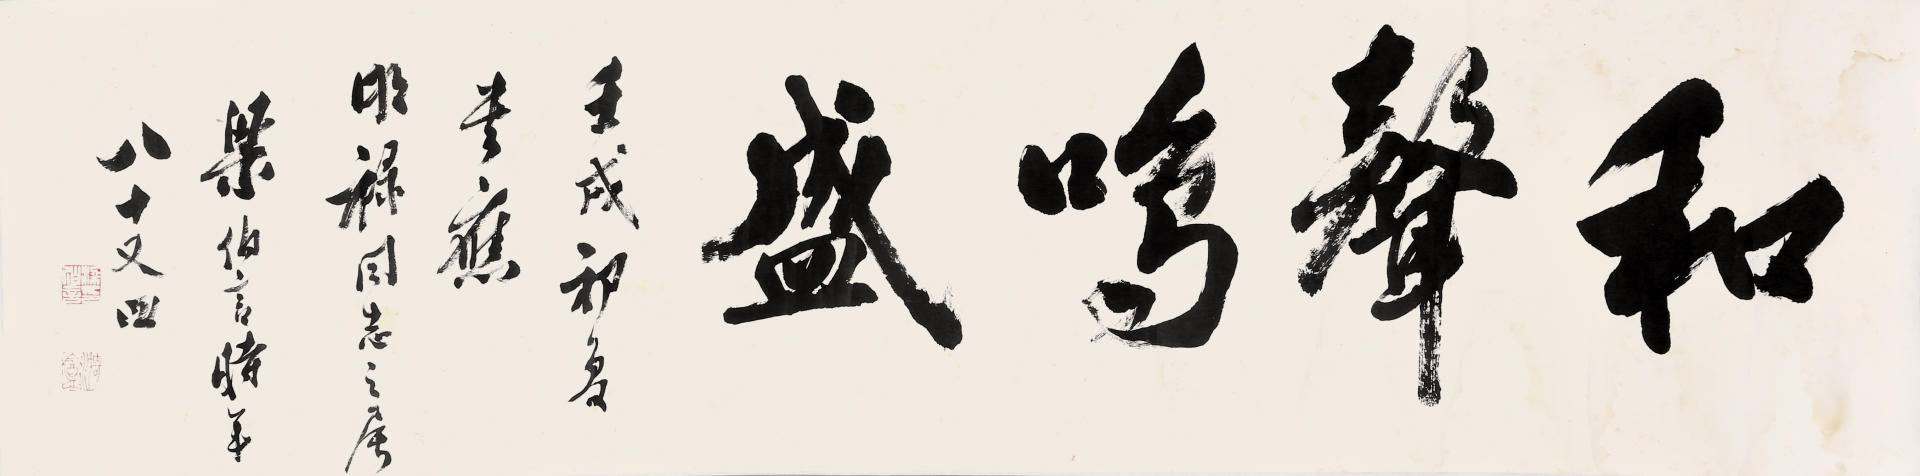 和聲鳴盛
壬戌初夏
書應
明祿同志之屬
梁伯言時年
八十又四